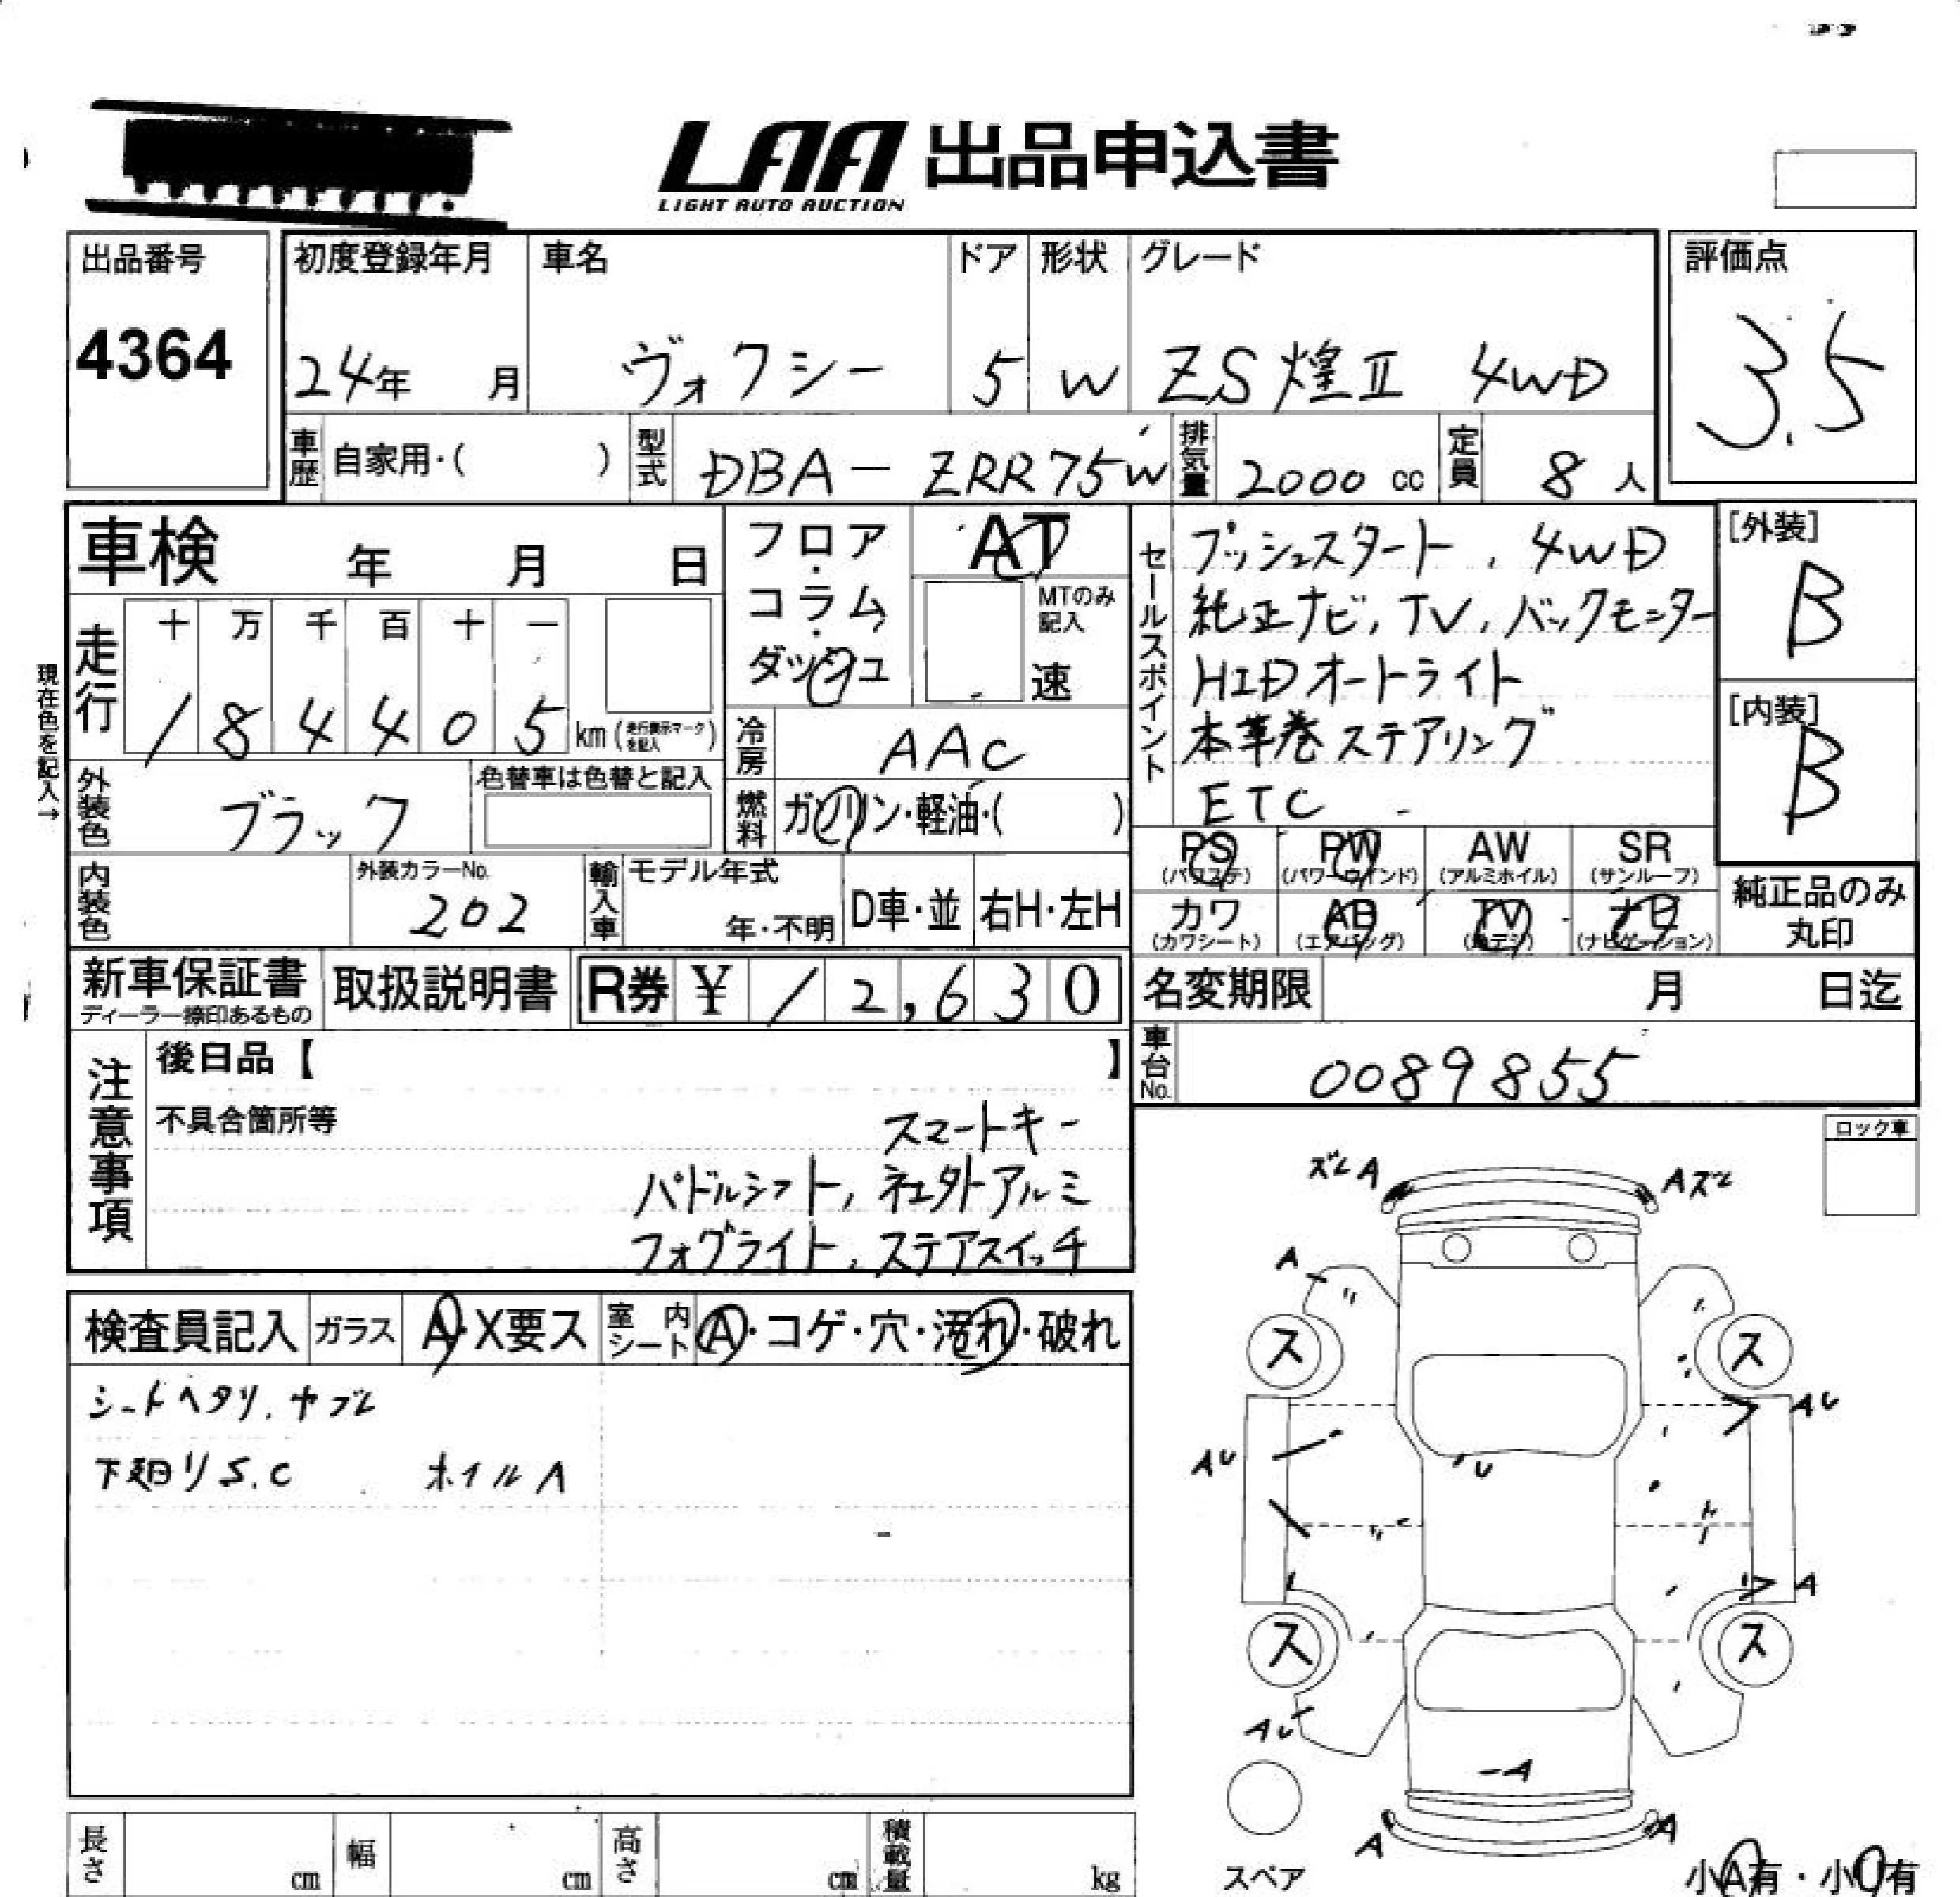 LAA 出品申込書
LIGHT AUTO AUCTION
出品番号
4364
初度登録年月
24年 月
車名
ヴォクシー
ドア
5
形状
W
グレード
ZS 煌Ⅱ 4WD
評価点
3.5
車歴 自家用・( )
型式 DBA-ZRR75W
排気量 2000 cc
定員 8 人
車検 年 月 日
現在色を記入→
走行
十 万 千 百 十 一
1 8 4 4 0 5 km (走行表示マークを記入)
フロア・コラム・ダッシュ
AT
MTのみ記入
速
冷房 AAC
燃料 ガソリン・軽油・( )
外装色 ブラック
色替車は色替と記入
内装色
外装カラーNo.
202
輸入車
モデル年式
年・不明
D車・並
右H・左H
セールスポイント
プッシュスタート、4WD
純正ナビ、TV、バックモニター
HIDオートライト
本革巻ステアリング
ETC
[外装]
B
[内装]
B
PS (パワステ)
PW (パワーウインド)
AW (アルミホイル)
SR (サンルーフ)
カワ (カワシート)
AB (エアバッグ)
TV (地デジ)
ナビ (ナビゲーション)
純正品のみ丸印
新車保証書
ディーラー捺印あるもの
取扱説明書
R券 ¥ 12,630
名変期限 月 日迄
車台No. 0089855
注意事項
後日品【 】
不具合箇所等
スマートキー
パドルシフト、社外アルミ
フォグライト、ステアスイッチ
検査員記入
ガラス A・X要ス
室内シート A・コゲ・穴・汚れ・破れ
シートヘタリ、ヤブレ
下廻りS.C ホイルA
ロック車
ズレA
Aズレ
A
ス
ス
AU
AU
U
A
ス
ス
AU
A
A
A
スペア
小A有・小U有
長さ cm
幅 cm
高さ cm
積載量 kg